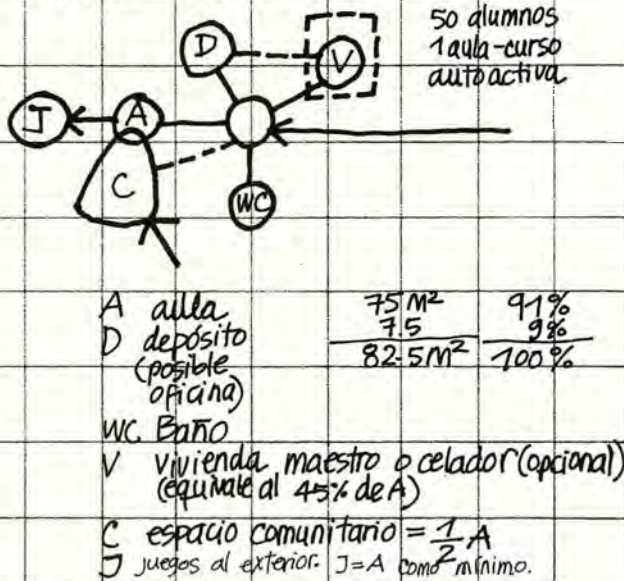 50 alumnos
1 aula-curso
autoactiva
D
V
J
A
C
WC
A aula 75 M² 91%
D depósito 7.5 9%
(posible 82.5 M² 100%
oficina)
WC. Baño
V vivienda maestro o celador (opcional)
(equivale al 45% de A)
C espacio comunitario = 1/2 A
J juegos al exterior. J=A como mínimo.